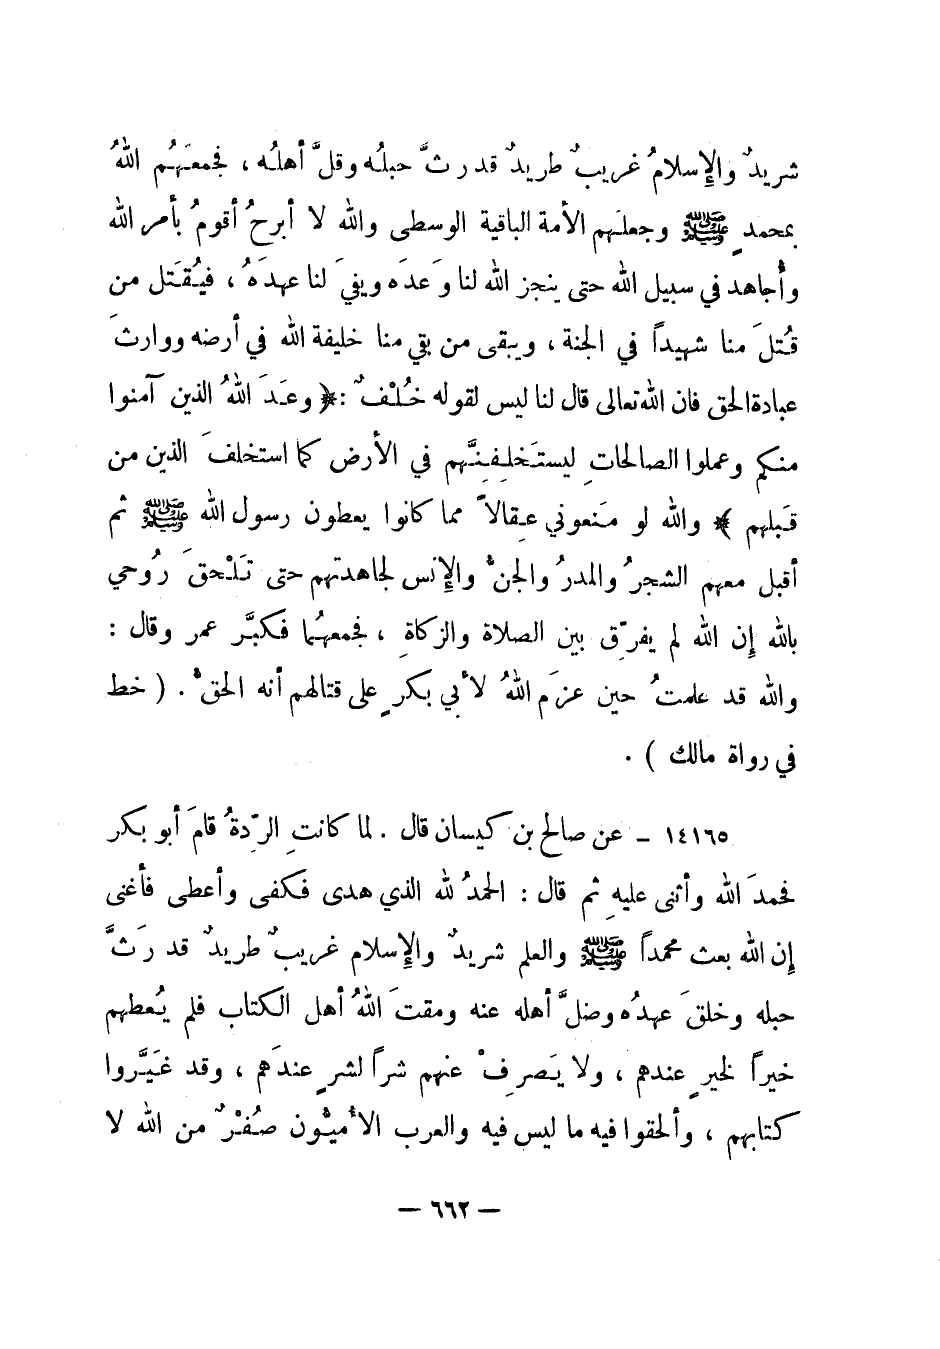 شريدٌ والإِسلامُ غريبٌ طريدٌ قد رثَّ حبلُه وقلَّ أهلُه ، فجمعَهُم اللهُ
بمحمدٍ ﷺ وجعلَهم الأمة الباقية الوسطى والله لا أبرحُ أقومُ بأمر الله
وأُجاهد في سبيل الله حتى ينجز الله لنا وَعدَه ويفيَ لنا عهدَهُ ، فيُقتَل من
قُتلَ منا شهيداً في الجنة ، ويبقى من بقي منا خليفة الله في أرضه ووارثَ
عبادة الحق فان الله تعالى قال لنا ليس لقوله خُلْفٌ : ﴿ وعَدَ اللهُ الذين آمنوا
منكم وعملوا الصالحاتِ ليستَخلِفنَّهم في الأرض كما استخلفَ الذين من
قبلهم ﴾ والله لو مَنعوني عِقالاً مما كانوا يعطون رسول الله ﷺ ثم
أقبل معهم الشجرُ والمدرُ والجنُّ والإِنس لجاهدتهم حتى تَلْحقَ رُوحي
بالله إن الله لم يفرّق بين الصلاة والزكاةِ ، فجمعهُما فكبَّر عمر وقال :
والله قد علمتُ حين عزَم اللهُ لأبي بكرٍ على قتالهم أنه الحقُّ . ( خط
في رواة مالك ) .
١٤١٦٥ – عن صالح بن كيسان قال . لما كانتِ الرّدةُ قامَ أبو بكر
فحمدَ الله وأثنى عليهِ ثم قال : الحمدُ لله الذي هدى فكفى وأعطى فأغنى
إن الله بعث محمداً ﷺ والعلم شريدٌ والإِسلام غريبٌ طريدٌ قد رَثَّ
حبله وخلقَ عهدُه وضلَّ أهله عنه ومقتَ اللهُ أهل الكتاب فلم يُعطهم
خيراً لخيرٍ عندهم ، ولا يَصرفْ عنهم شراً لشرٍ عندَهم ، وقد غَيَّروا
كتابهم ، وألحقوا فيه ما ليس فيه والعرب الأميُّون صُفْرٌ من الله لا
— ٦٦٢ —